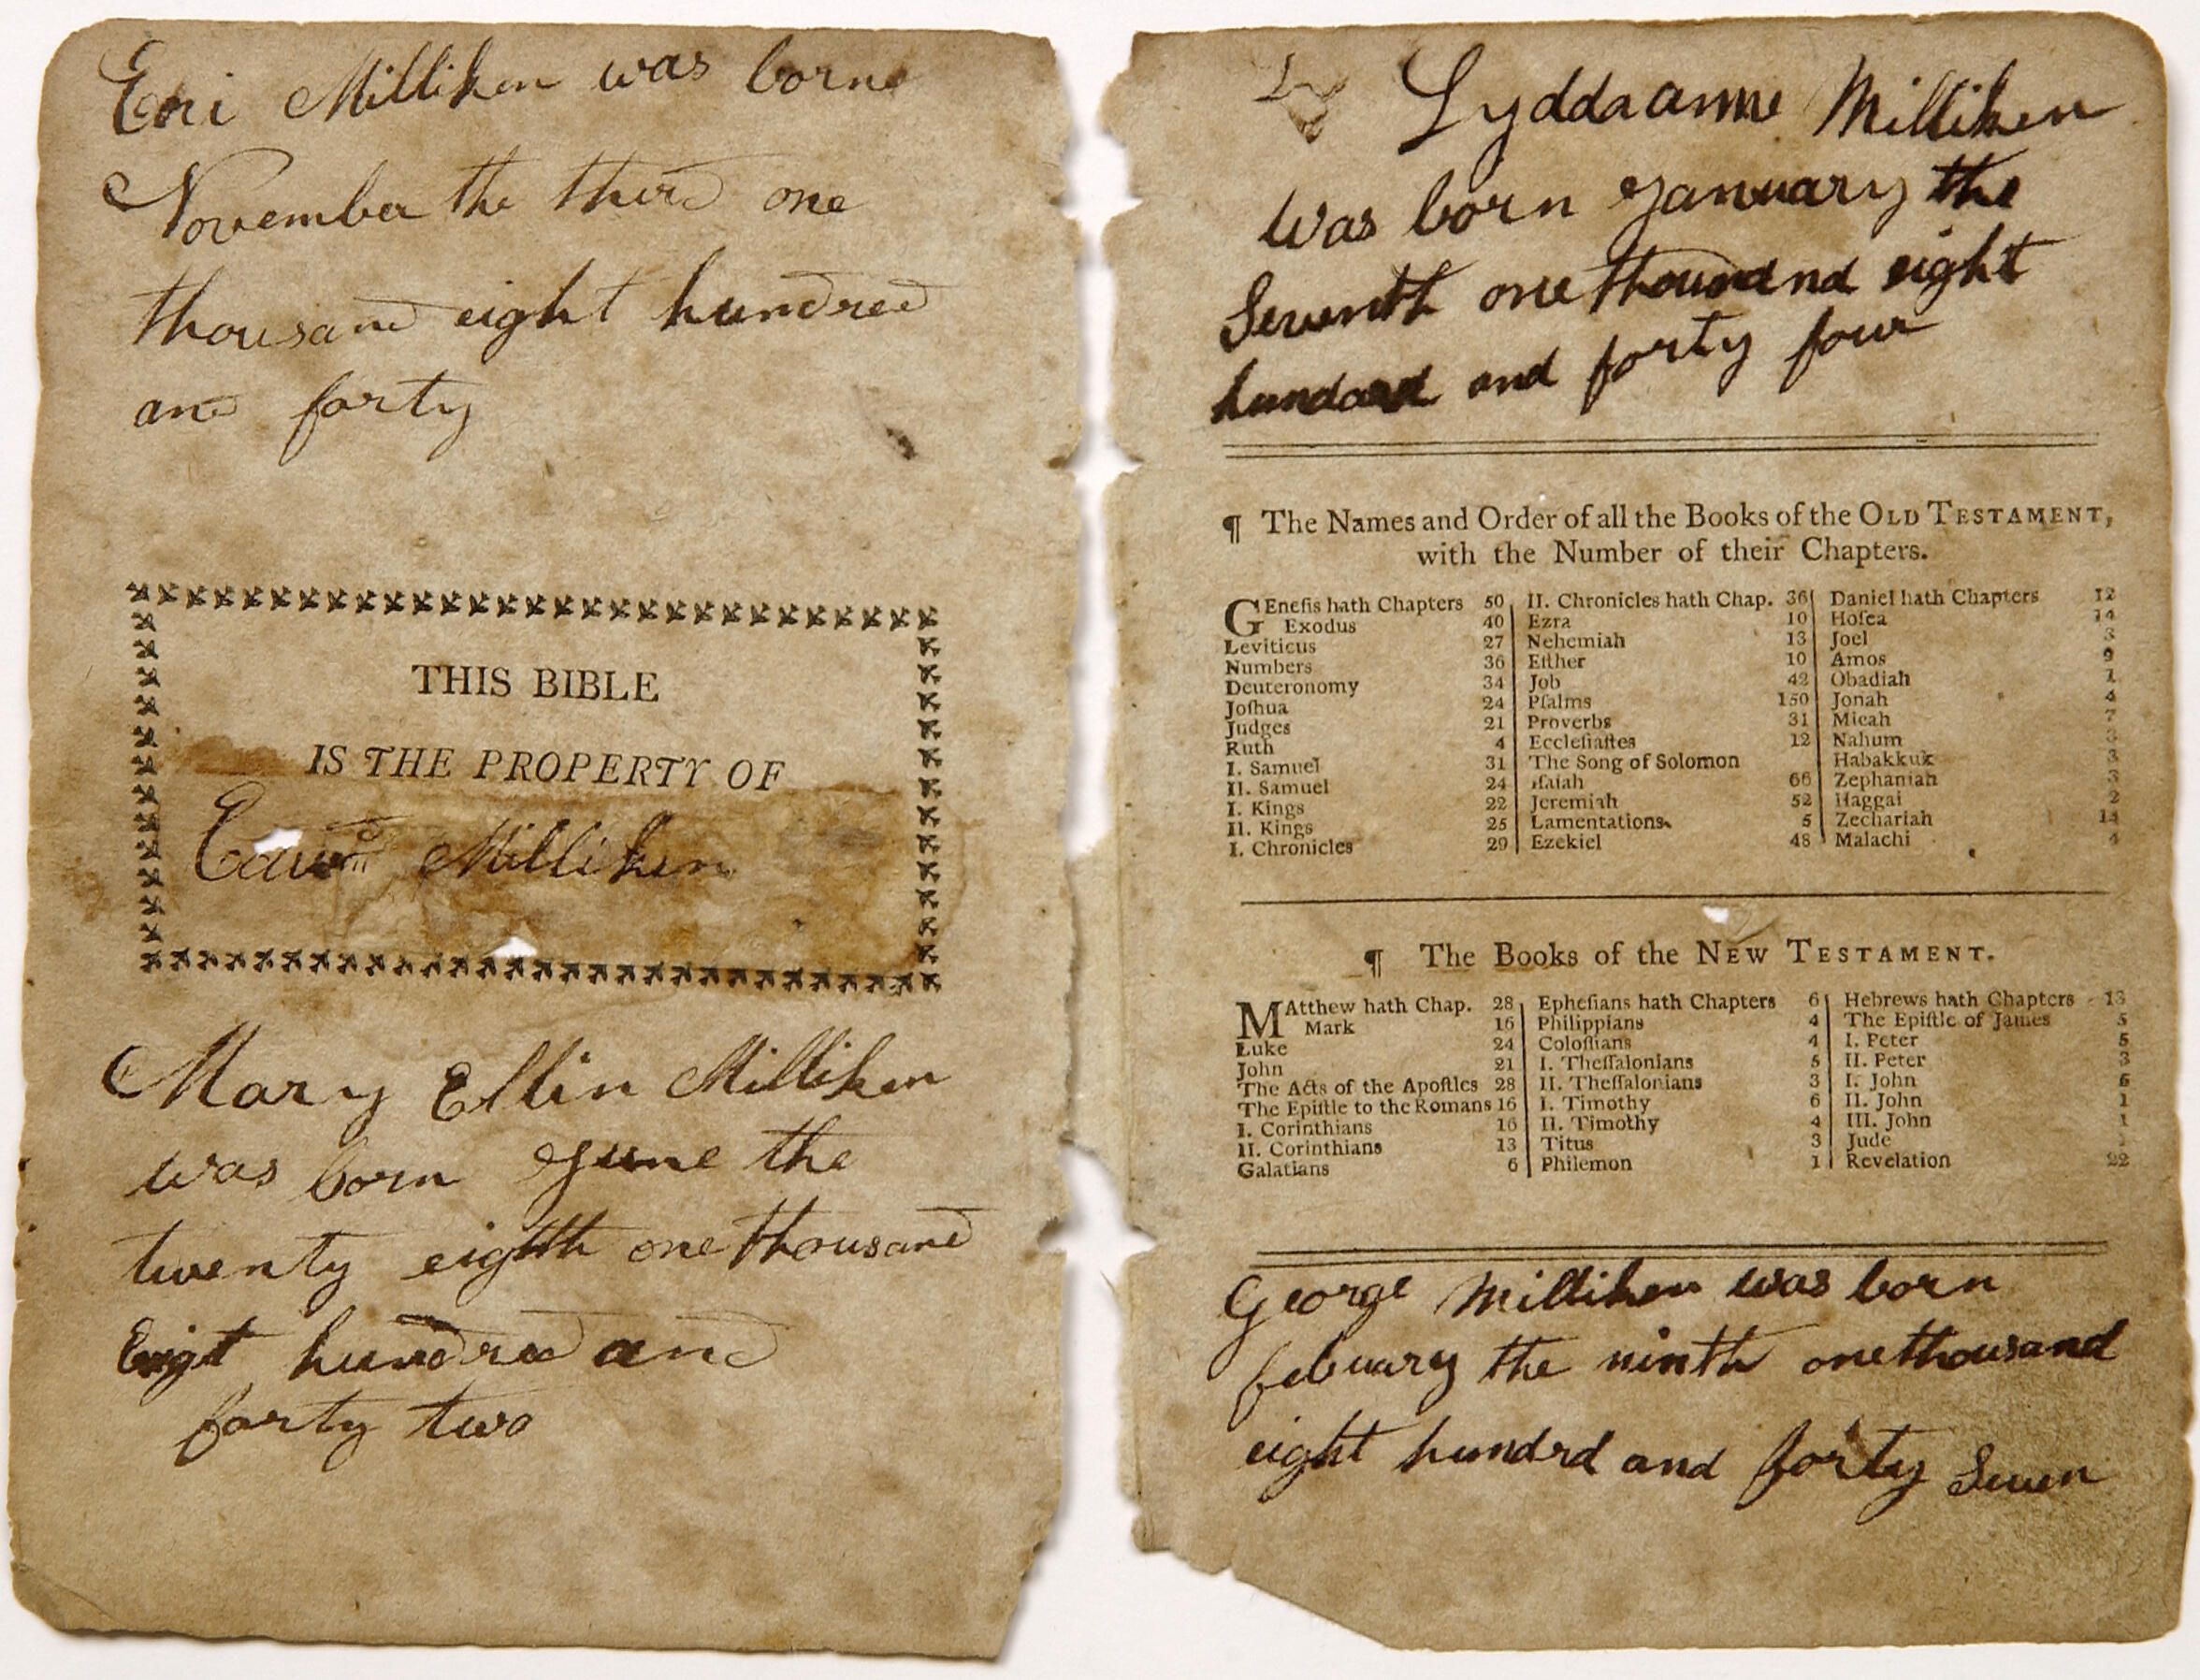 Eni Milliken was borne
November the third one
thousand eight hundred
and forty
THIS BIBLE
IS THE PROPERTY OF
Milliken
Mary Ellin Milliken
was born June the
twenty eighth one thousand
Eight hundred and
forty two
Lyddaanne Milliken
was born January the
Seventh one thousand eight
hundard and forty four
¶ The Names and Order of all the Books of the OLD TESTAMENT,
with the Number of their Chapters.
GEneſis hath Chapters 50
Exodus 40
Leviticus 27
Numbers 36
Deuteronomy 34
Joſhua 24
Judges 21
Ruth 4
I. Samuel 31
II. Samuel 24
I. Kings 22
II. Kings 25
I. Chronicles 29
II. Chronicles hath Chap. 36
Ezra 10
Nehemiah 13
Eſther 10
Job 42
Pſalms 150
Proverbs 31
Eccleſiaſtes 12
The Song of Solomon
Iſaiah 66
Jeremiah 52
Lamentations 5
Ezekiel 48
Daniel hath Chapters 12
Hoſea 14
Joel 3
Amos 9
Obadiah 1
Jonah 4
Micah 7
Nahum 3
Habakkuk 3
Zephaniah 3
Haggai 2
Zechariah 14
Malachi 4
¶ The Books of the NEW TESTAMENT.
MAtthew hath Chap. 28
Mark 16
Luke 24
John 21
The Acts of the Apoſtles 28
The Epiſtle to the Romans 16
I. Corinthians 16
II. Corinthians 13
Galatians 6
Epheſians hath Chapters 6
Philippians 4
Coloſſians 4
I. Theſſalonians 5
II. Theſſalonians 3
I. Timothy 6
II. Timothy 4
Titus 3
Philemon 1
Hebrews hath Chapters 13
The Epiſtle of James 5
I. Peter 5
II. Peter 3
I. John 5
II. John 1
III. John 1
Jude 1
Revelation 22
George Milliken was born
febuary the ninth one thousand
eight hundrd and forty Seven